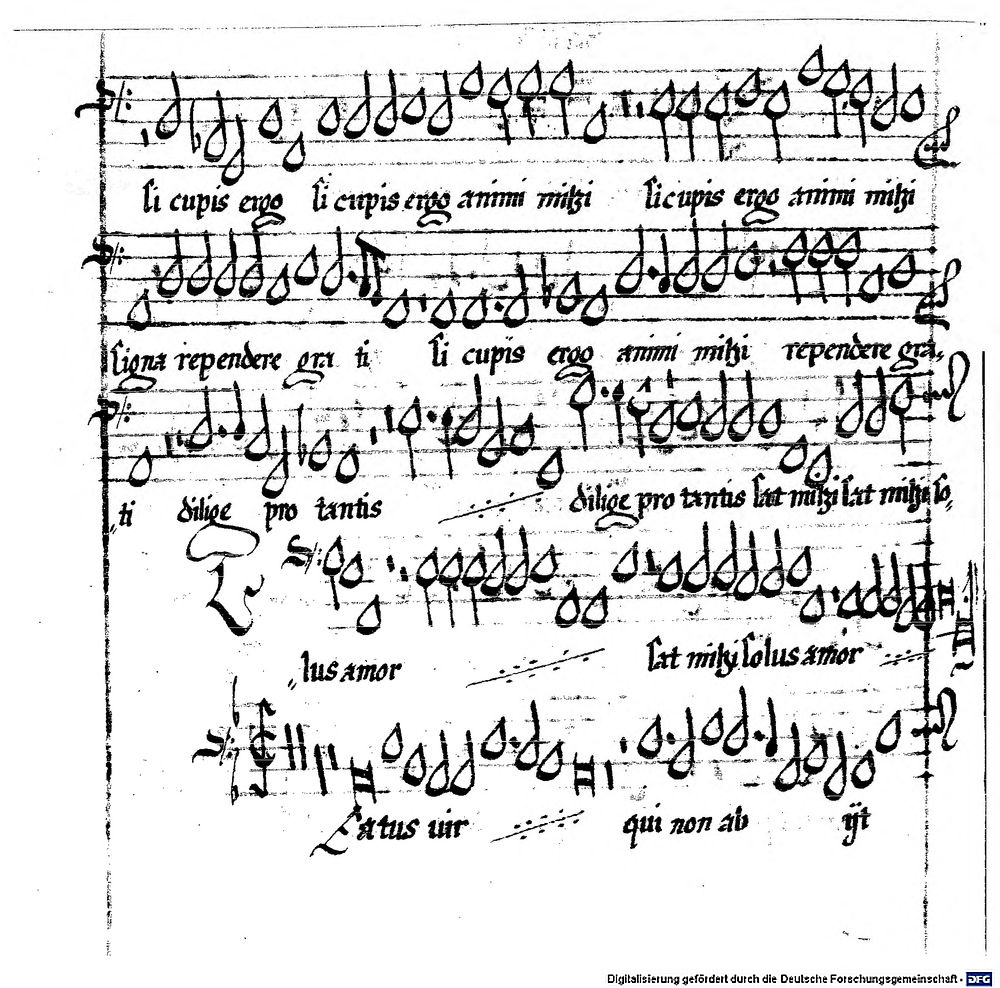 si cupis ergo si cupis ergo animi mihi si cupis ergo animi mihi
signa rependere gra ti si cupis ergo animi mihi rependere gra„
„ti dilige pro tantis dilige pro tantis sat mihi sat mihi so„
„lus amor sat mihi solus amor
Eatus vir qui non ab ijt
Digitalisierung gefördert durch die Deutsche Forschungsgemeinschaft - DFG